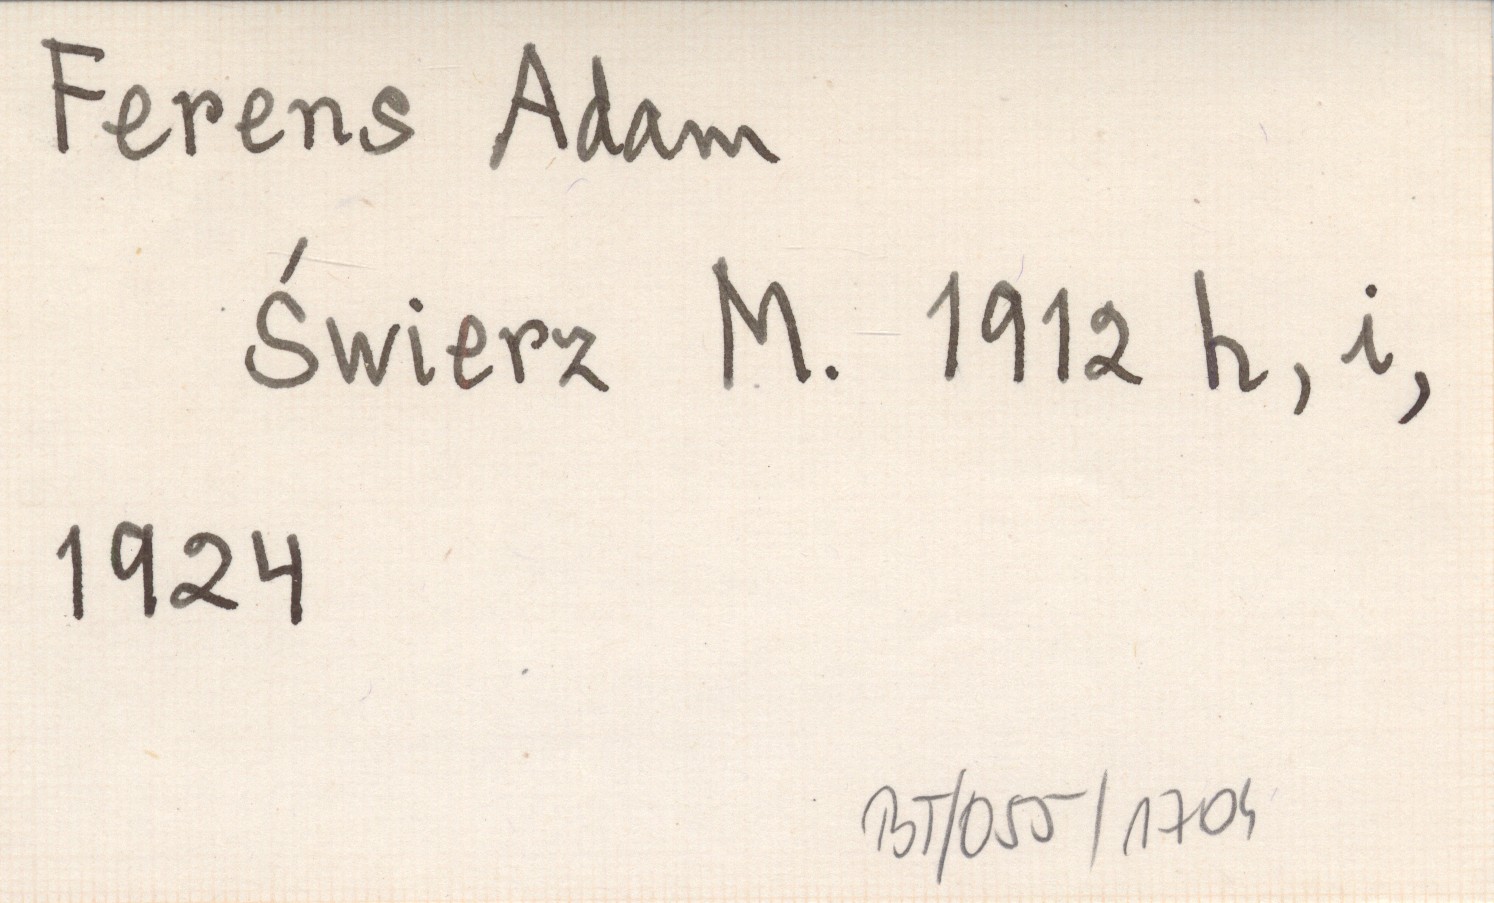 Ferens Adam
Świerz M. 1912 h, i,
1924
BT/055/1704